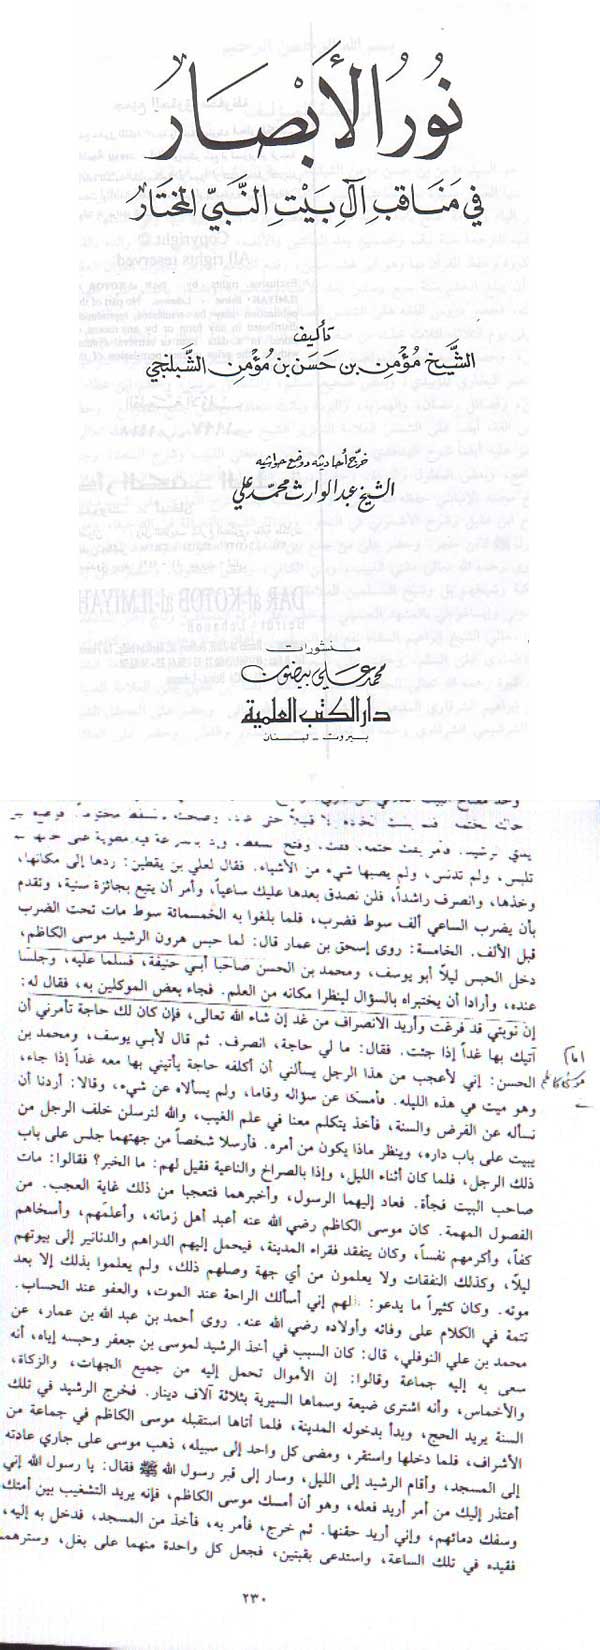 نُورُ الأَبْصَار
في مَنَاقب آلِ بَيْتِ النَّبيِّ المختار
تأليف
الشَّيخ مُؤمن بن حَسَن بن مُؤمن الشَّبلنجي
خرّج أحاديثه ووضع حواشيه
الشيخ عبد الوارث محمّد علي
منشورات
محمد علي بيضون
دار الكتب العلمية
بيروت - لبنان
تلبس، ولم تدنس، ولم يصبها شيء من الأشياء. فقال لعلي بن يقطين: ردها إلى مكانها،
وخذها، وانصرف راشداً، فلن نصدق بعدها عليك ساعياً، وأمر أن يتبع بجائزة سنية، وتقدم
بأن يضرب الساعي ألف سوط فضرب، فلما بلغوا به الخمسمائة سوط مات تحت الضرب
قبل الألف. الخامسة: روى إسحق بن عمار قال: لما حبس هرون الرشيد موسى الكاظم،
دخل الحبس ليلاً أبو يوسف، ومحمد بن الحسن صاحبا أبي حنيفة، فسلما عليه، وجلسا
عنده، وأرادا أن يختبراه بالسؤال لينظرا مكانه من العلم. فجاء بعض الموكلين به، فقال له:
إن نوبتي قد فرغت وأريد الانصراف من غد إن شاء الله تعالى، فإن كان لك حاجة تأمرني أن
آتيك بها غداً إذا جئت. فقال: ما لي حاجة، انصرف. ثم قال لأبي يوسف، ومحمد بن
الحسن: إني لأعجب من هذا الرجل يسألني أن أكلفه حاجة يأتيني بها معه غداً إذا جاء،
وهو ميت في هذه الليله. فأمسكا عن سؤاله وقاما، ولم يسألاه عن شيء، وقالا: أردنا أن
نسأله عن الفرض والسنة، فأخذ يتكلم معنا في علم الغيب، والله لنرسلن خلف الرجل من
يبيت على باب داره، وينظر ماذا يكون من أمره. فأرسلا شخصاً من جهتهما جلس على باب
ذلك الرجل، فلما كان أثناء الليل، وإذا بالصراخ والناعية فقيل لهم: ما الخبر؟ فقالوا: مات
صاحب البيت فجأة. فعاد إليهما الرسول، وأخبرهما فتعجبا من ذلك غاية العجب. من
الفصول المهمة. كان موسى الكاظم رضي الله عنه أعبد أهل زمانه، وأعلمهم، وأسخاهم
كفاً، وأكرمهم نفساً، وكان يتفقد فقراء المدينة، فيحمل إليهم الدراهم والدنانير إلى بيوتهم
ليلاً، وكذلك النفقات ولا يعلمون من أي جهة وصلهم ذلك، ولم يعلموا بذلك إلا بعد
موته. وكان كثيراً ما يدعو: اللهم إني أسألك الراحة عند الموت، والعفو عند الحساب.
تتمة في الكلام على وفاته وأولاده رضي الله عنه. روى أحمد بن عبد الله بن عمار، عن
محمد بن علي النوفلي، قال: كان السبب في أخذ الرشيد لموسى بن جعفر وحبسه إياه، أنه
سعى به إليه جماعة وقالوا: إن الأموال تحمل إليه من جميع الجهات، والزكاة،
والأخماس، وأنه اشترى ضيعة وسماها السيرية بثلاثة آلاف دينار. فخرج الرشيد في تلك
السنة يريد الحج، وبدأ بدخوله المدينة، فلما أتاها استقبله موسى الكاظم في جماعة من
الأشراف، فلما دخلها واستقر، ومضى كل واحد إلى سبيله، ذهب موسى على جاري عادته
إلى المسجد، وأقام الرشيد إلى الليل، وسار إلى قبر رسول الله ﷺ فقال: يا رسول الله إني
أعتذر إليك من أمر أريد فعله، وهو أن أمسك موسى الكاظم، فإنه يريد التشغيب بين أمتك،
وسفك دمائهم، وإني أريد حقنها. ثم خرج، فأمر به، فأخذ من المسجد، فدخل به إليه،
فقيده في تلك الساعة، واستدعى بقبتين، فجعل كل واحدة منهما على بغل، وسترهما
٢٣٠